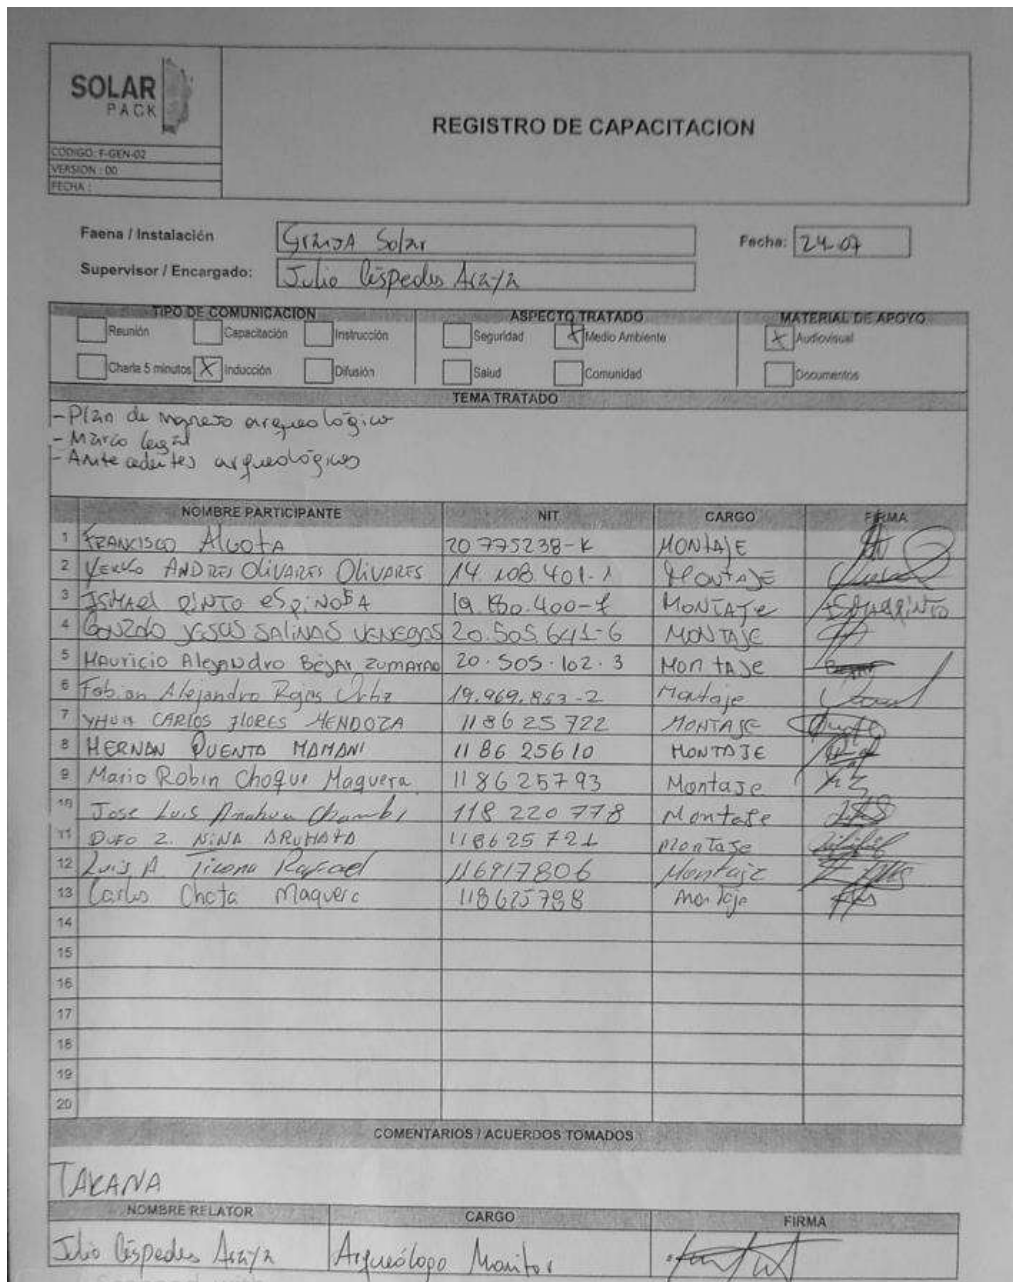 SOLAR
PACK
CODIGO: F-GEN-02
VERSION : 00
FECHA :
REGISTRO DE CAPACITACION
Faena / Instalación Granja Solar Fecha: 24-07
Supervisor / Encargado: Julio Céspedes Araya
TIPO DE COMUNICACION ASPECTO TRATADO MATERIAL DE APOYO
Reunión Capacitación Instrucción Seguridad X Medio Ambiente X Audiovisual
Charla 5 minutos X Inducción Difusión Salud Comunidad Documentos
TEMA TRATADO
- Plan de arqueológico
- Marco legal
- Antecedentes arqueológicos
NOMBRE PARTICIPANTE NIT CARGO FIRMA
1 FRANCISCO Alcota 20 775238-K MONTAJE
2 YERKO ANDRES OLIVARES OLIVARES 14.108.401-1 MONTAJE
3 ISMAEL PINTO ESPINOSA MONTAJE
4 GONZALO JESUS SALINAS VENEGAS 20.505.641-6 MONTAJE
5 Mauricio Alejandro Bejar 20.505.102.3 Montaje
6 Fabian Alejandro Rojas 19.969.853-2 Montaje
7 CARLOS FLORES MENDOZA 118625722 MONTAJE
8 HERNAN QUENTA MAMANI 118625610 MONTAJE
9 Mario Robin Choque Maquera 118625793 Montaje
10 Jose Luis 118 220 778 Montaje
11 NINA 118625721 Montaje
12 Luis A Ticona Rafael 116917806 Montaje
13 Carlos Chota Maquera 118625788 Montaje
14
15
16
17
18
19
20
COMENTARIOS / ACUERDOS TOMADOS
TAKANA
NOMBRE RELATOR CARGO FIRMA
Julio Céspedes Araya Arqueólogo Monitor